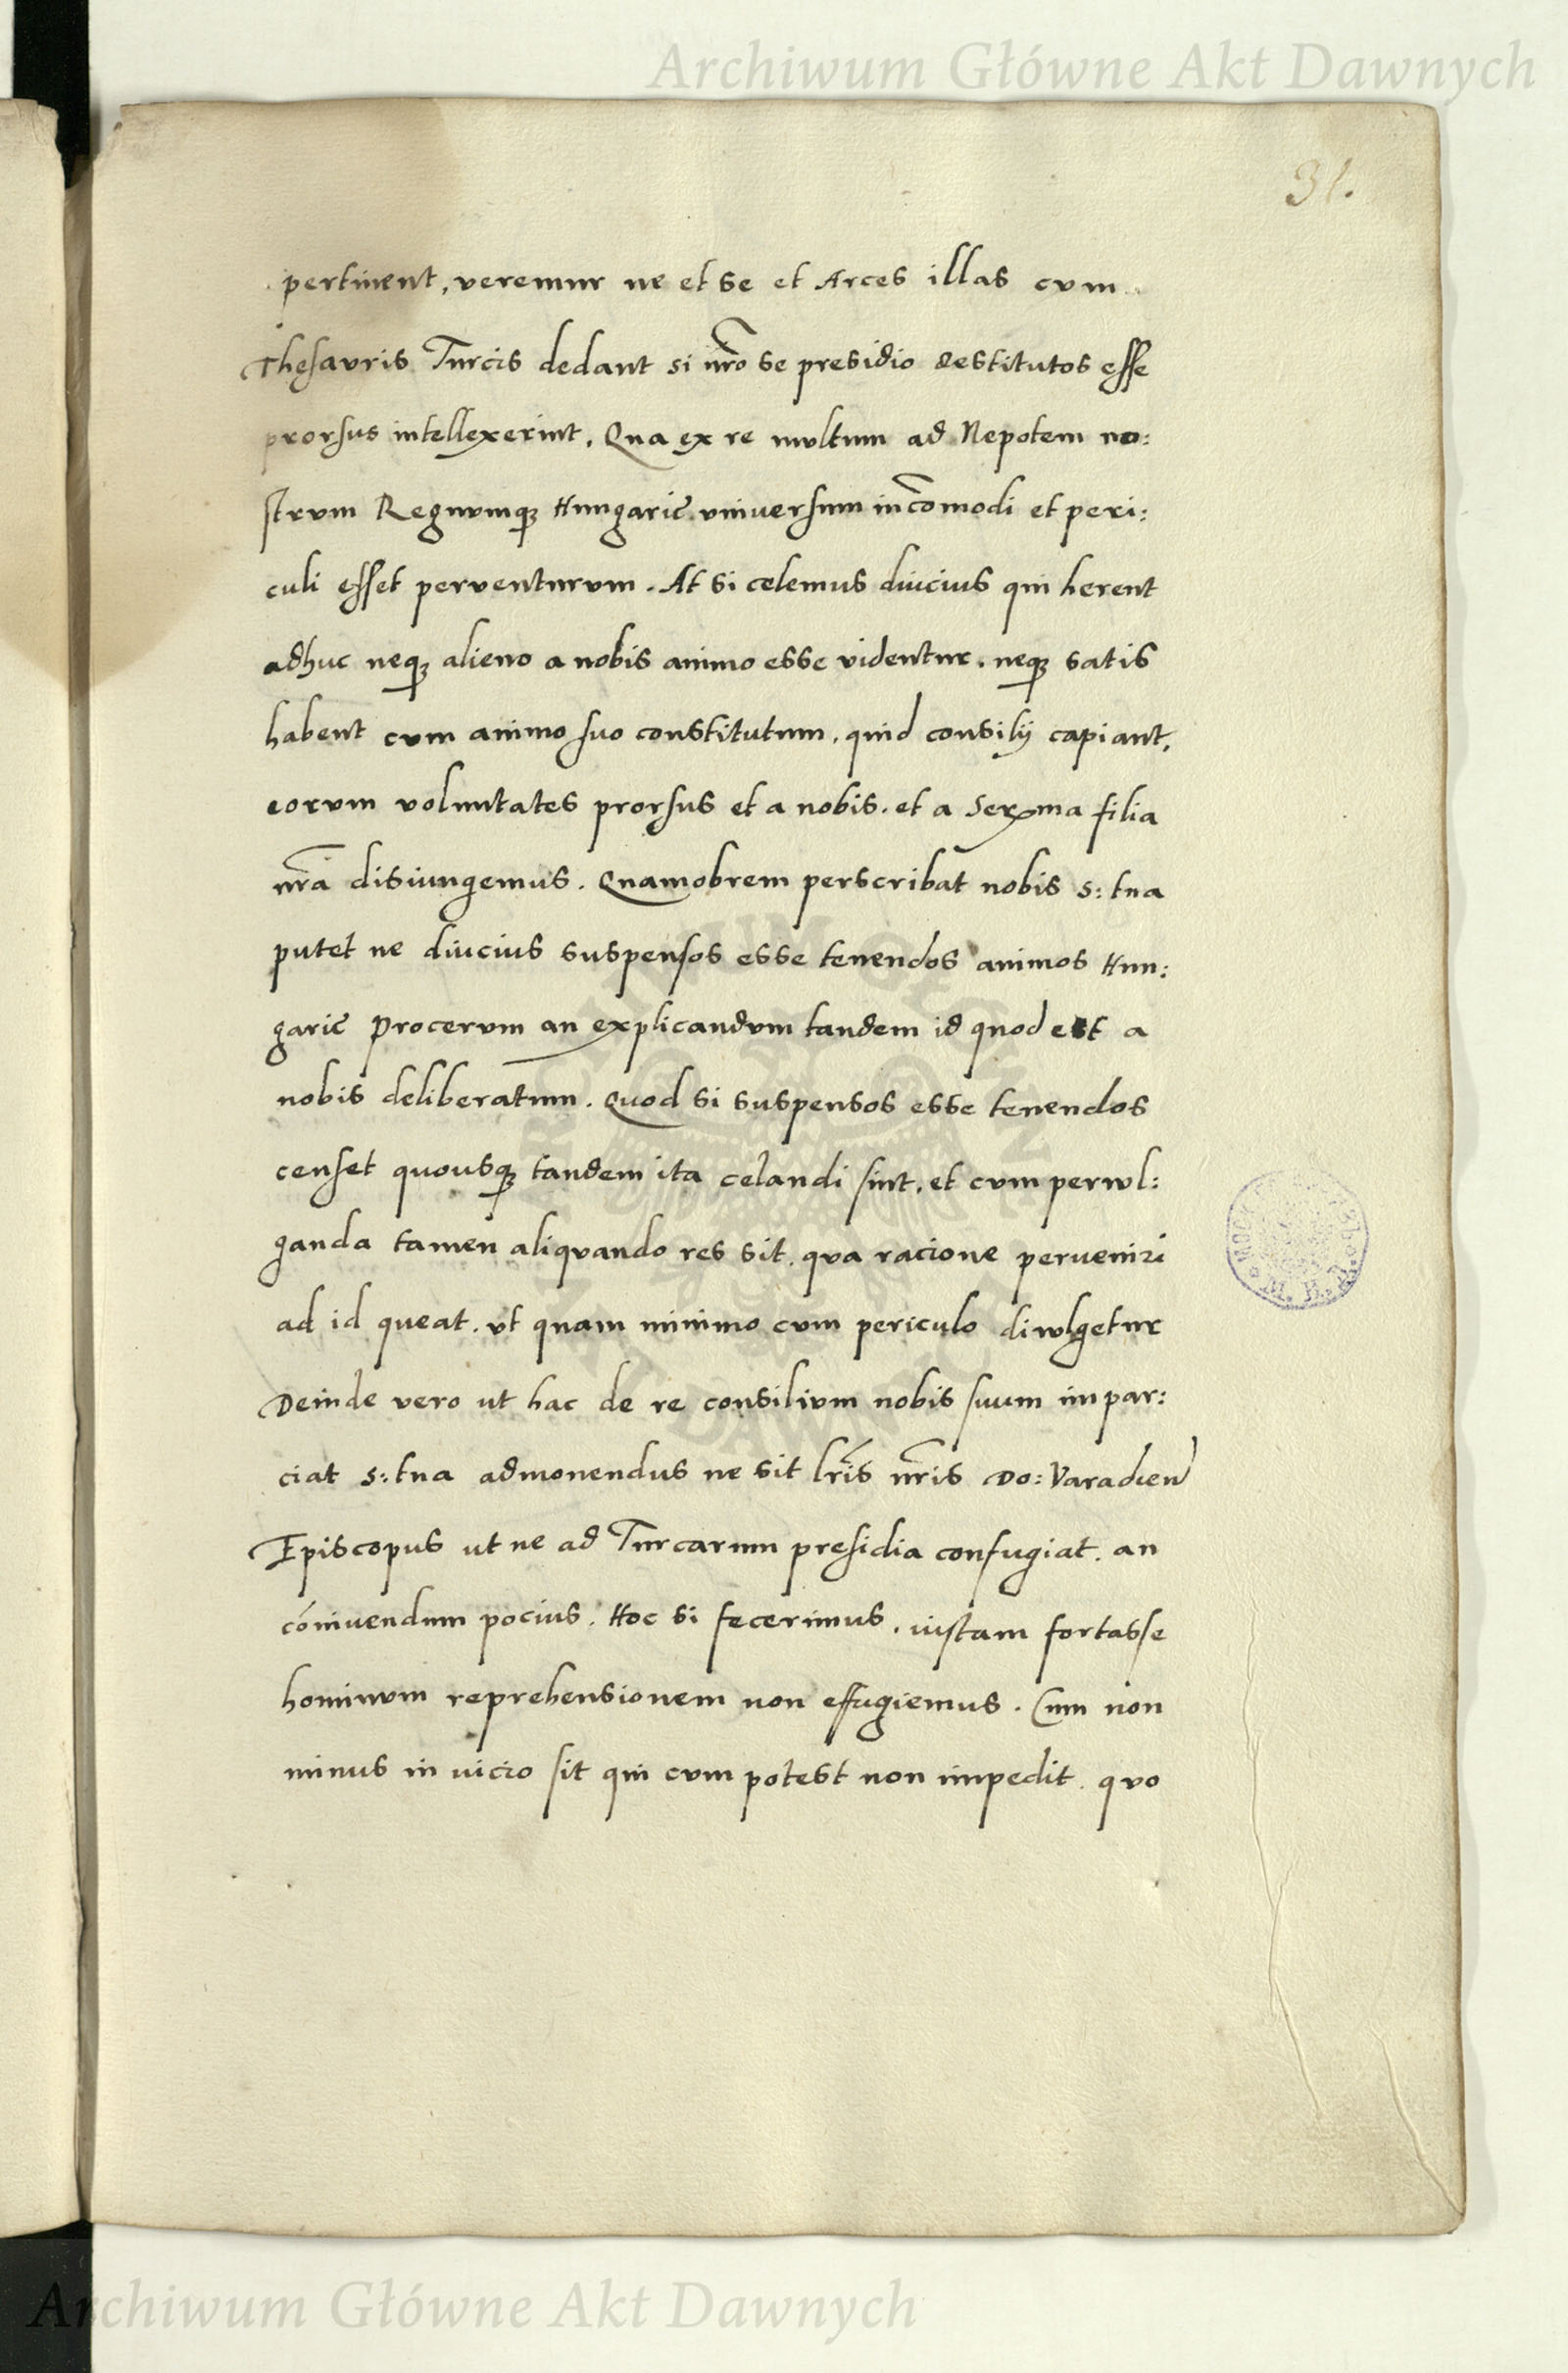 Archiwum Główne Akt Dawnych
31.
pertinent, veremur ne et se et Arces illas cum
Thesauris Turcis dedant si nr̃o se presidio destitutos esse
prorsus intellexerint. Qua ex re multum ad Nepotem no:
strum Regnumq; Hungarię universum incõmodi et peri:
culi esset perventurum. At si celemus diucius qui herent
adhuc neq; alieno a nobis animo esse videntur. neq; satis
habent cum animo suo constitutum, quid consilij capiant,
eorum voluntates prorsus et a nobis. et a Serma filia
nr̃a disiungemus. Quamobrem perscribat nobis s: tua
putet ne diucius suspensos esse tenendos animos Hun:
garię Procerum an explicandum tandem id quod est a
nobis deliberatum. Quod si suspensos esse tenendos
censet quousq; tandem ita celandi sint, et cum perwl:
ganda tamen aliquando res sit. qua racione perveniri
ad id queat. ut quam minimo cum periculo diwlgetur
Deinde vero ut hac de re consilium nobis suum impar:
ciat s: tua admonendus ne sit lr̃is nr̃is Do: Varadien
Episcopus ut ne ad Turcarum presidia confugiat. an
cõnivendum pocius. Hoc si fecerimus, iustam fortasse
hominum reprehensionem non effugiemus. Cum non
minus in vicio sit qui cum potest non impedit. quo
Archiwum Główne Akt Dawnych